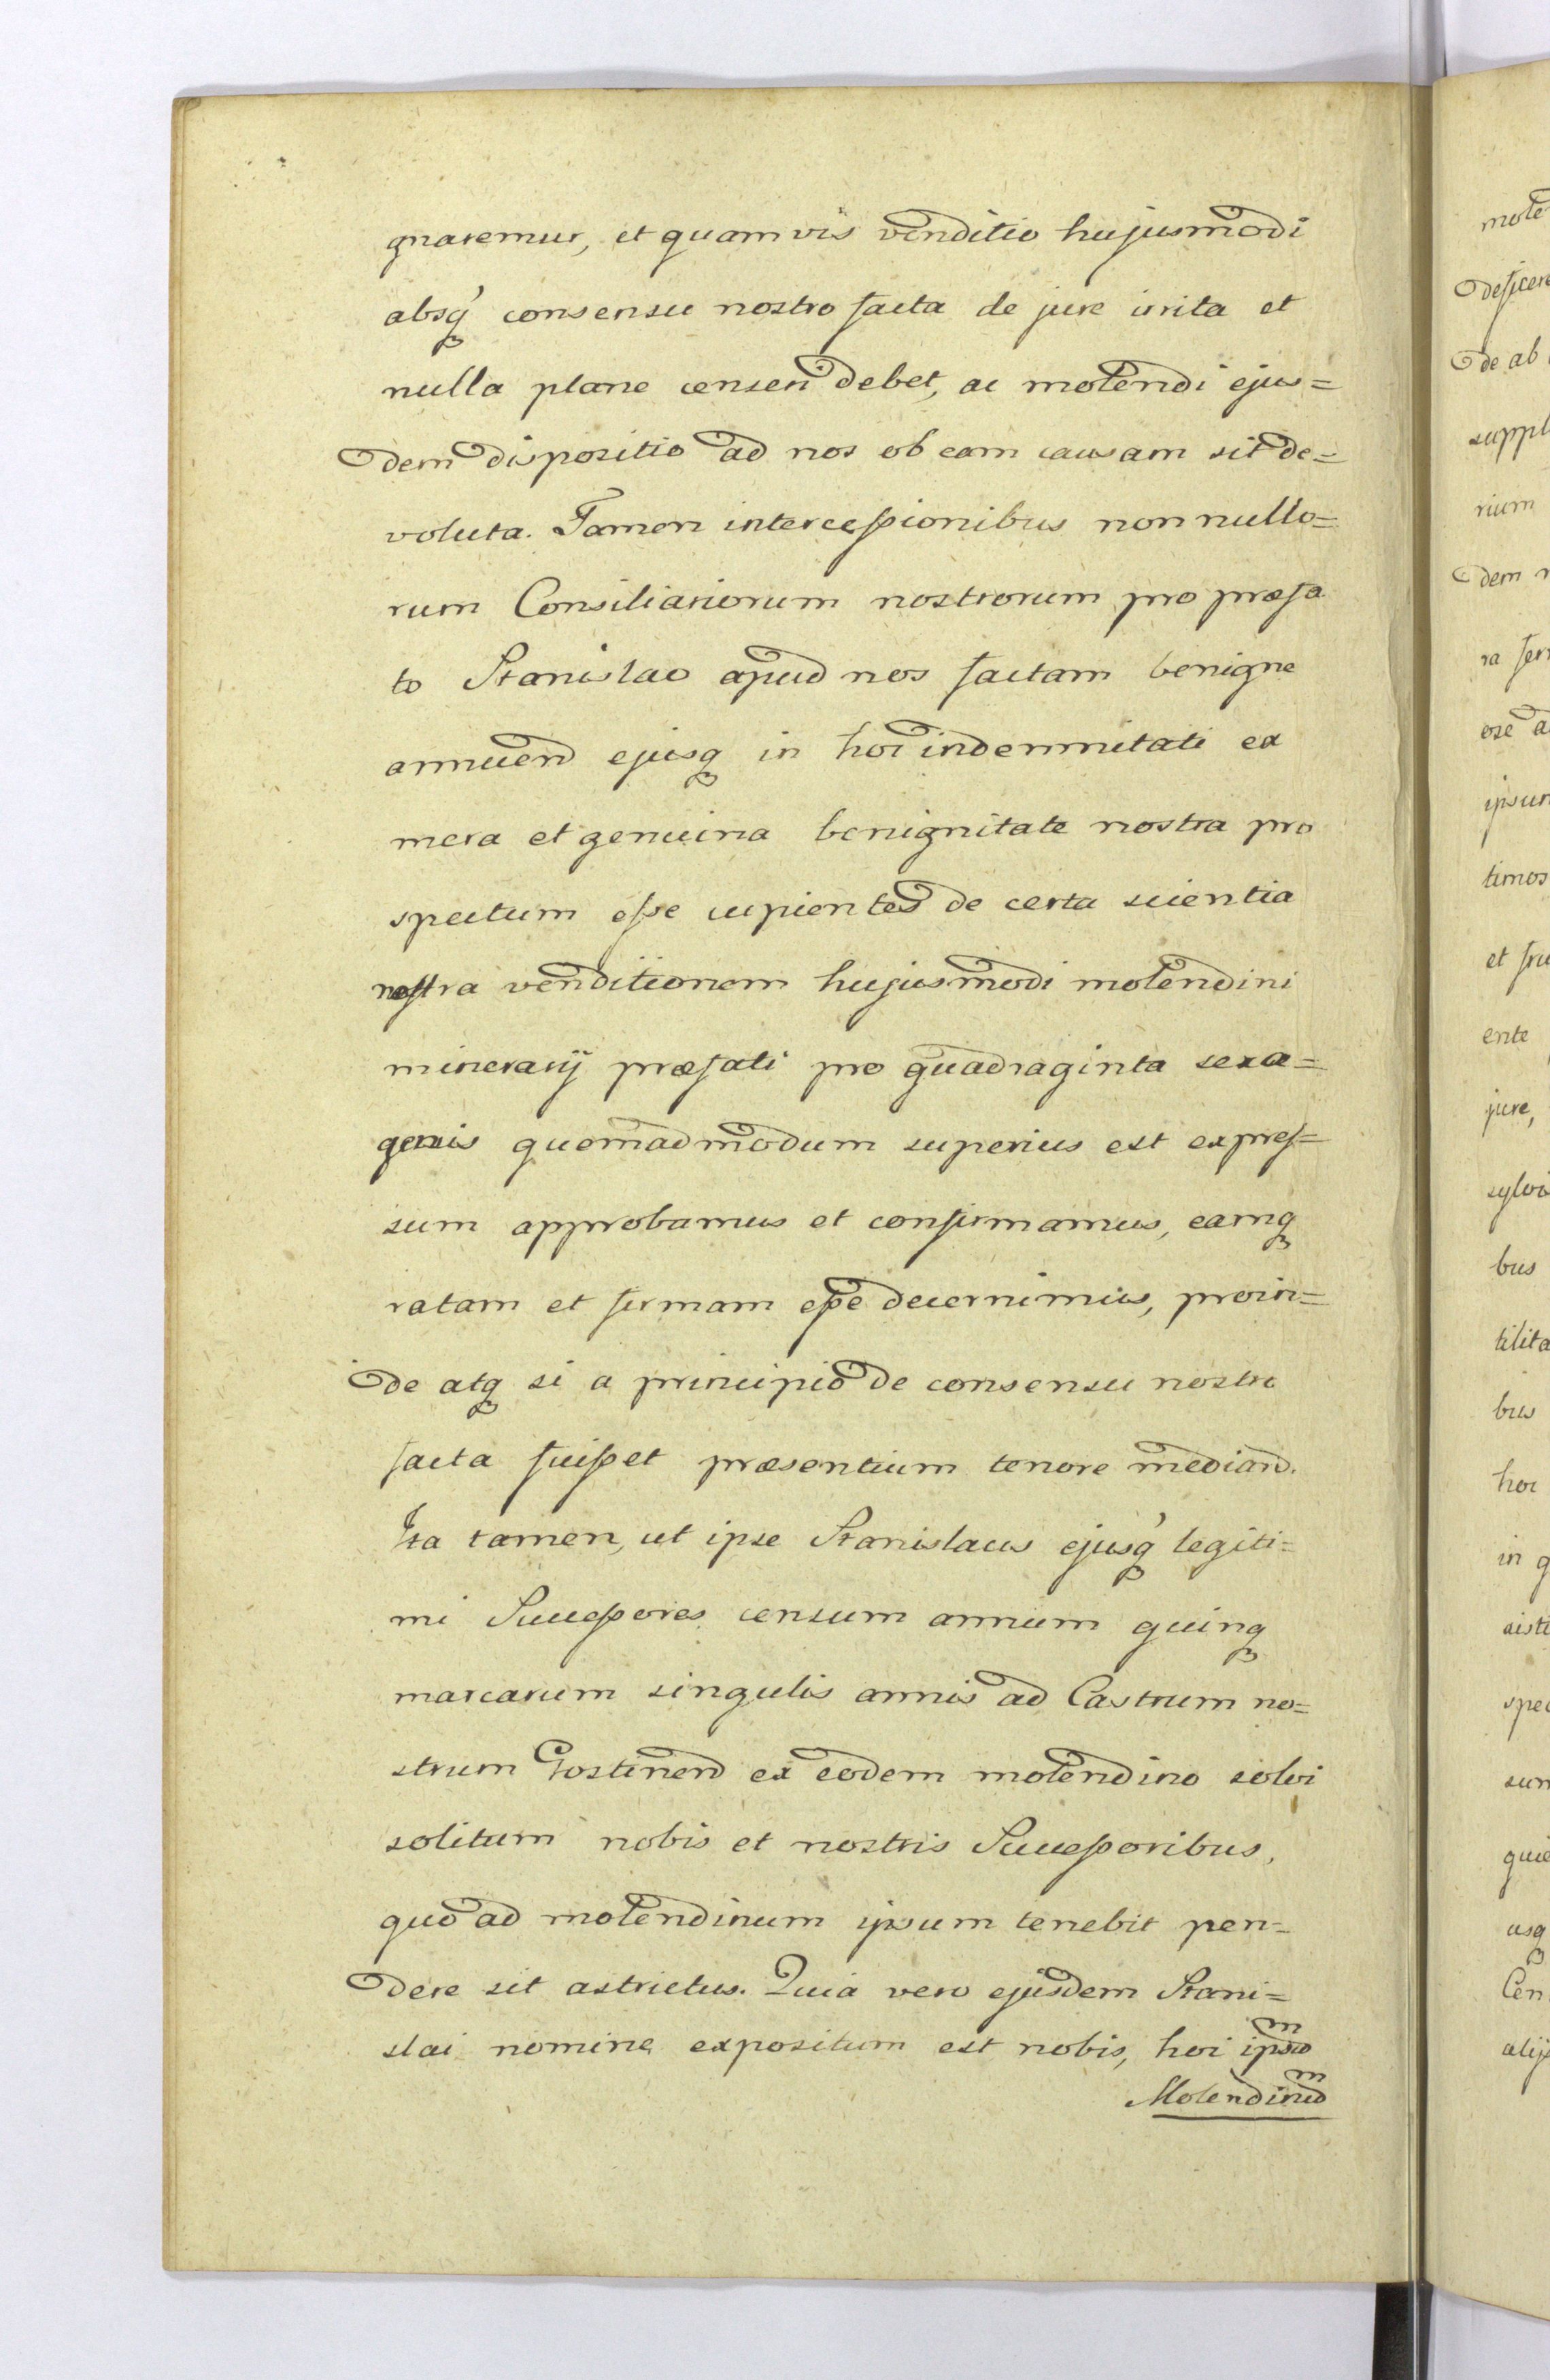 gnaremur, et quamvis venditio hujusmodi
absq́ consensu nostro facta de jure irrita et
nulla plane censeri debet, ac molendi ejus=
dem dispositio ad nos ob eam causam sit de=
voluta. Tamen intercessionibus nonnullo=
rum Consiliariorum nostrorum pro præfa
to Stanislao apud nos factam benigne
annuend ejusq in hoc indemnitati ex
mera et genuina benignitate nostra pro
spectum esse cupientes de certa scientia
nostra venditionem hujusmodi molendini
minerarij præfati pro quadraginta sexa=
genis quomadmodum superius est expres=
sum approbamus et confirmamus, eamq
ratam et firmam esse decernimus, proin=
de atq si a principio de consensu nostro
facta fuisset præsentium tenore mediand.
Ita tamen, ut ipse Stanislaus ejusq́ legiti=
mi Successores censum annuum quinq
marcarum singulis annis ad Castrum no=
strum Gostinen ex eodem molendino solvi
solitum nobis et nostris Successoribus,
quo ad molendinum ipsum tenebit pen=
dere sit astrictus. Quia vero ejusdem Stani=
slai nomine expositum est nobis, hoc ipsum
Molendinum
mole
deficere
de ab
suppl
rium
dem
ra fer
ose a
ipsum
timos
et fru
ente
jure,
sylvi
bus
tilita
bus
hoc
in q
aisti
spec
sum
quie
usq
Cen
alij